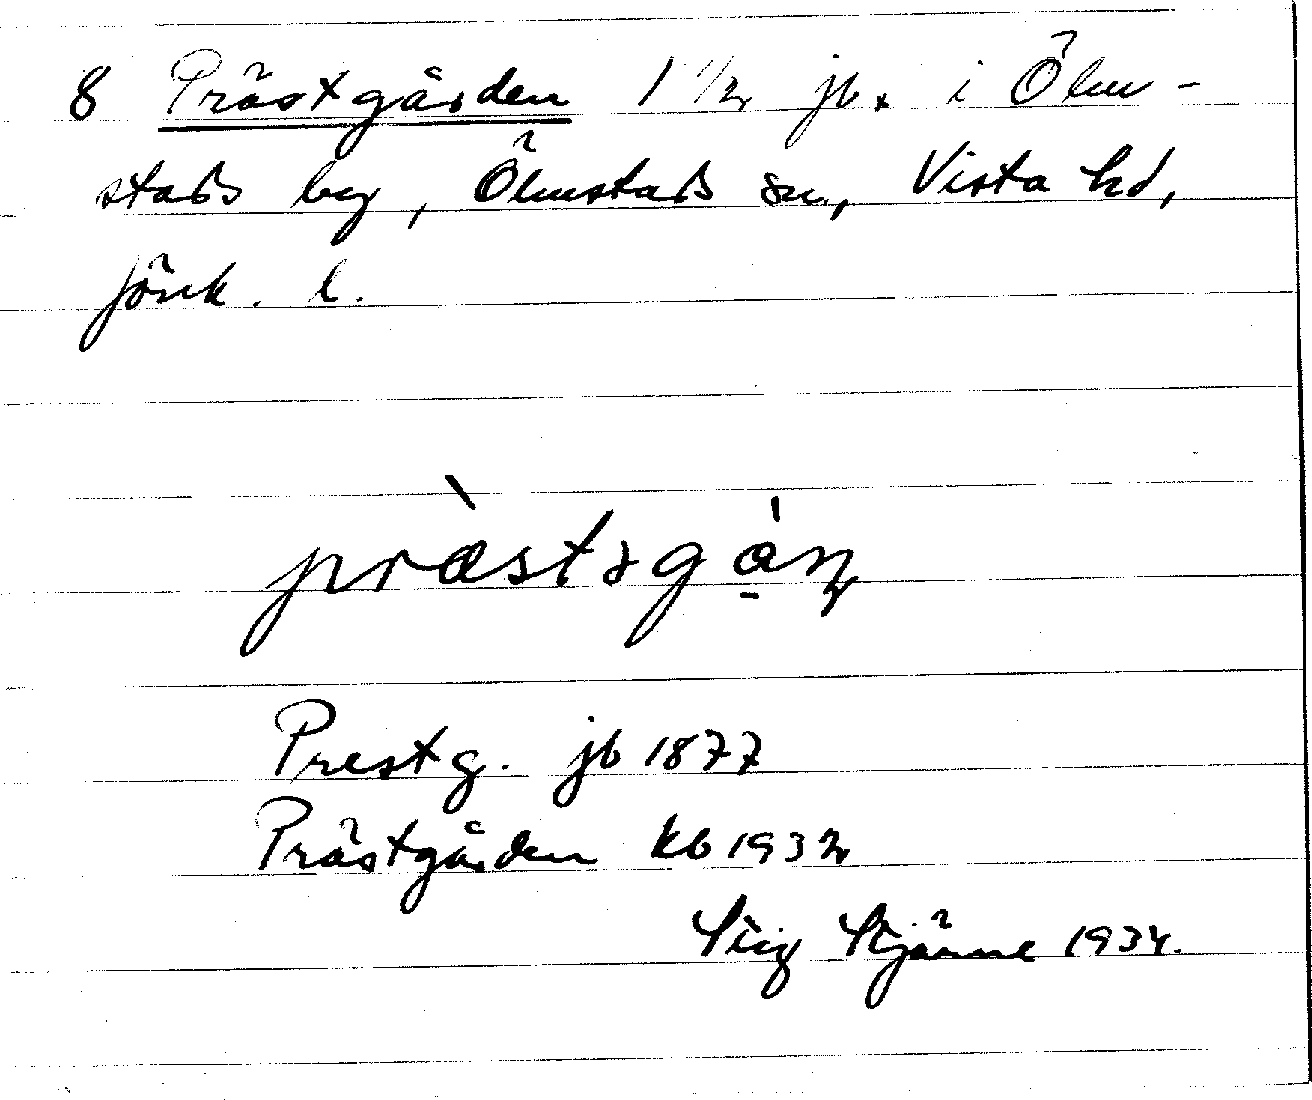 8 Prästgården 1 1/2 jb. i Ölm-
stads by, Ölmstads sn, Vista hd,
Jönk. l.
præ̀stəgɑ̣́n
Prestg. jb 1877
Prästgården kb 1932
Stig Stjärne 1934.